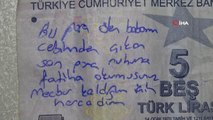 TÜRKİYE CUMHURİYET MERKEZ BA
iHA
Bu para ölen babamın
cebinden çıkan
son para ruhuna
fatiha okumusunuz
mecbur kaldığım için
harcadım
5
BEŞ
TÜRK LİRA